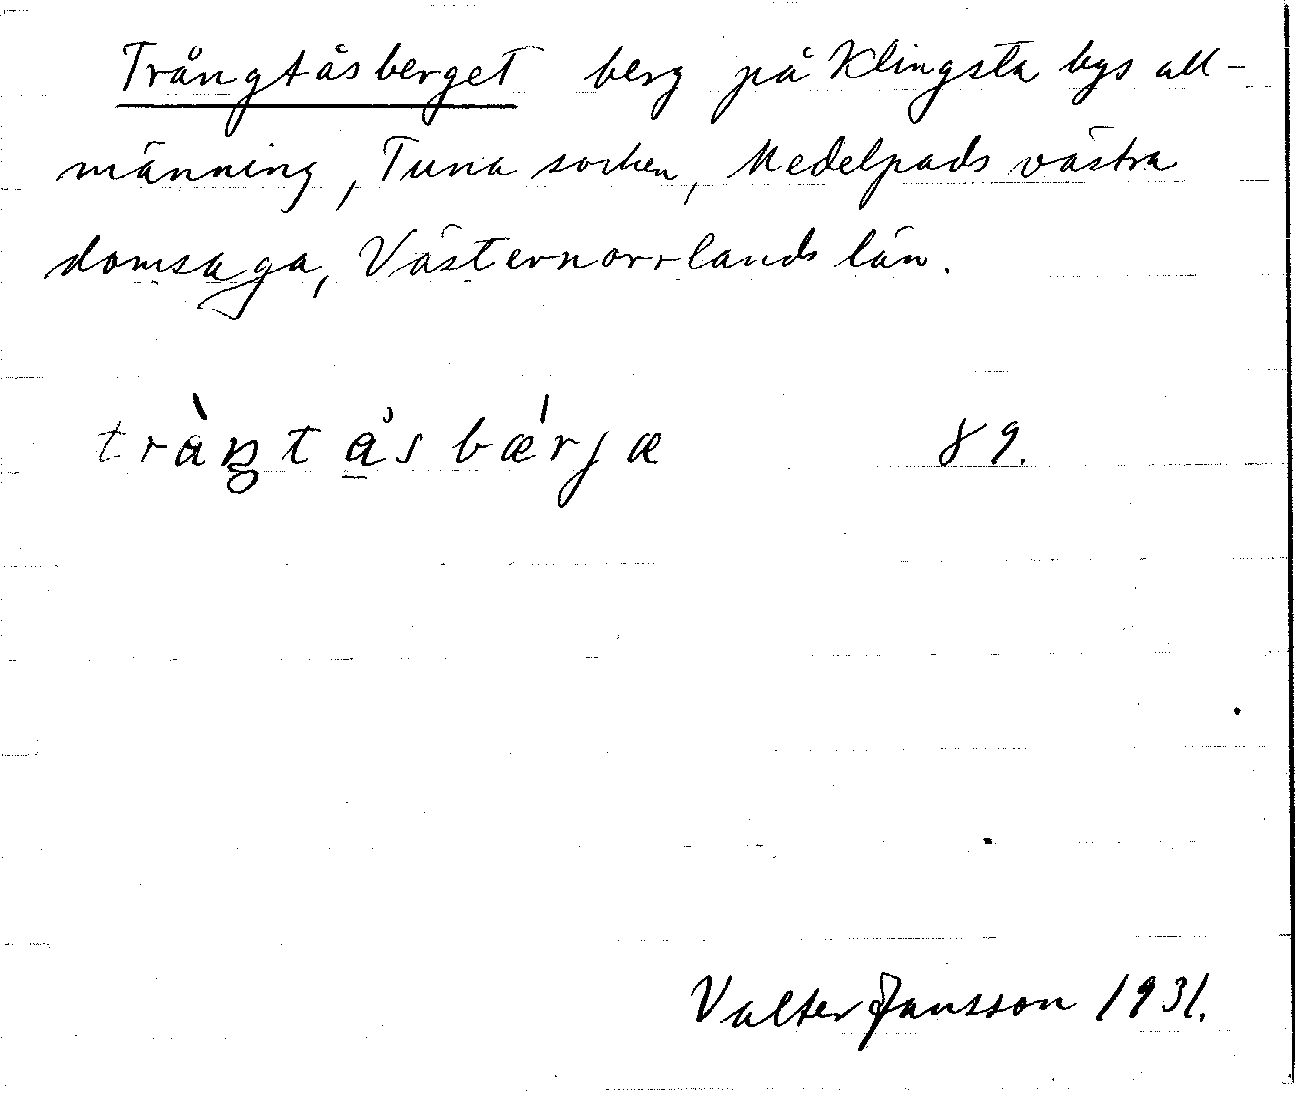 Trångtåsberget berg på Klingsta bys all-
männing, Tuna socken, Medelpads västra
domsaga, Västernorrlands län.
tràŋtåsbǽrjæ 89.
Valter Jansson 1931.